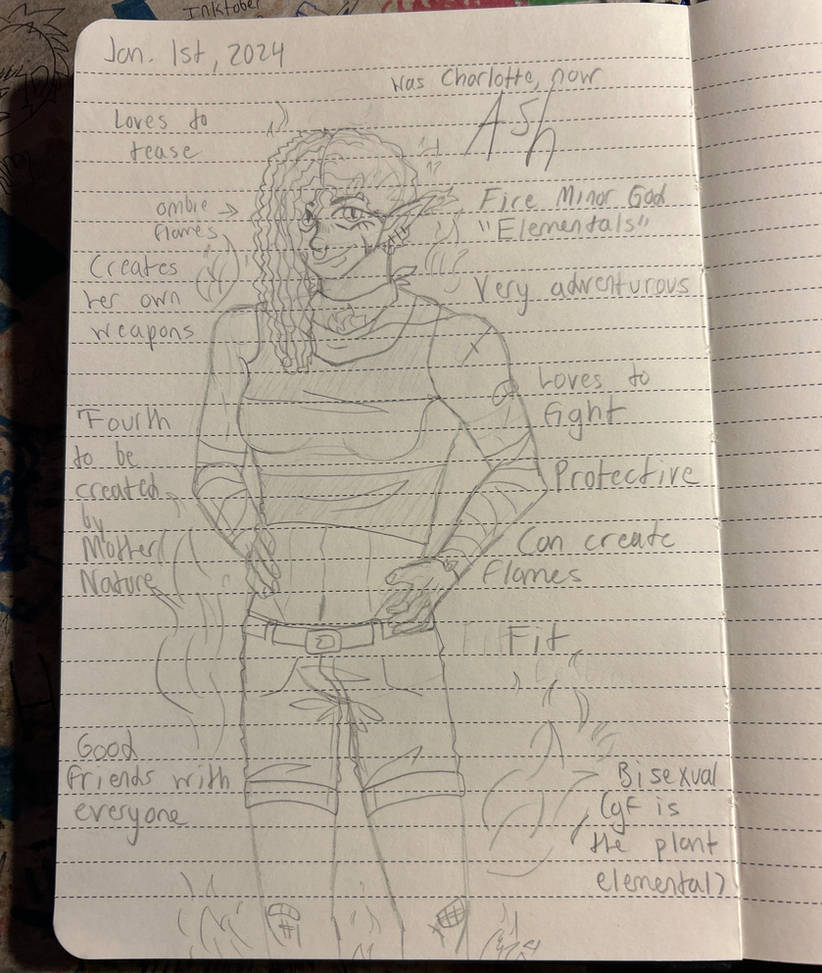 Inktober
Jan. 1st, 2024
Was Charlotte, now
Ash
Loves to
tease
ombre
flames
Fire Minor God
"Elementals"
Creates
her own
weapons
Very adventurous
Loves to
fight
Fourth
to be
created
by
Mother
Nature
Protective
Can create
flames
Fit
Good
friends with
everyone
Bisexual
(gf is
the plant
elemental)
#1